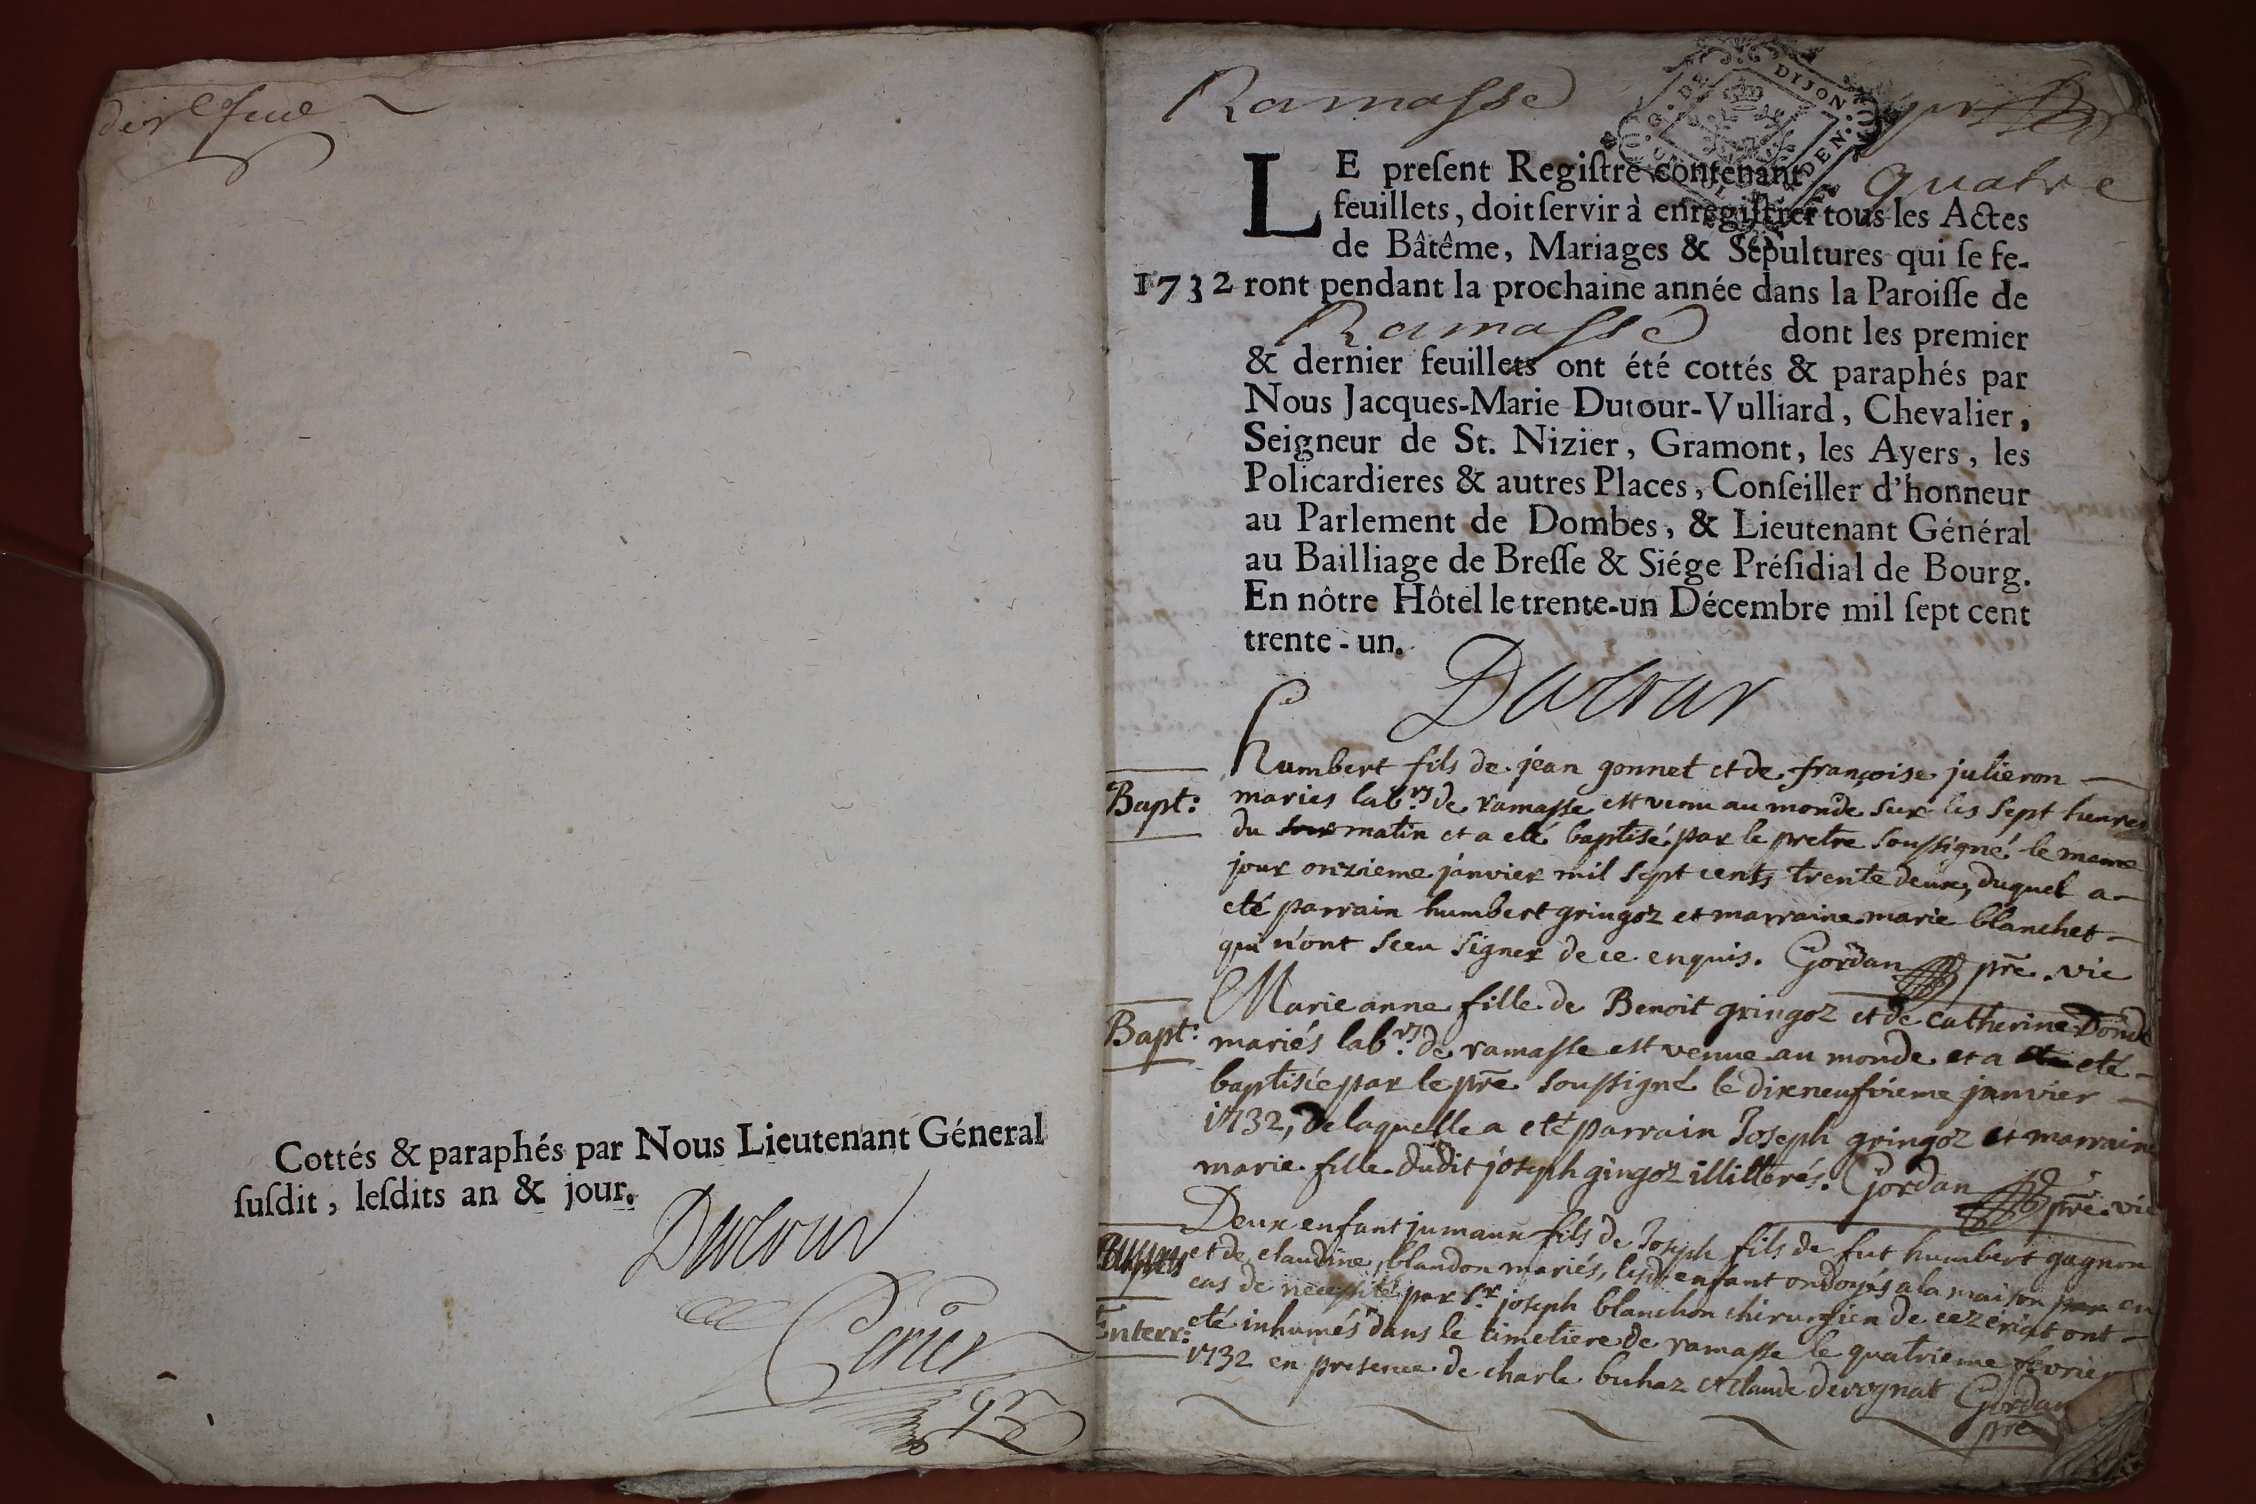 Ramasse
G. DE DIJON
LE preſent Regiſtre contenant quatre
feuillets, doit ſervir à enregiſtrer tous les Actes
de Bâtême, Mariages & Sepultures qui ſe fe-
1732 ront pendant la prochaine année dans la Paroiſſe de
Ramasse dont les premier
& dernier feuillets ont été cottés & paraphés par
Nous Jacques-Marie Dutour-Vulliard, Chevalier,
Seigneur de St. Nizier, Gramont, les Ayers, les
Policardieres & autres Places, Conſeiller d'honneur
au Parlement de Dombes, & Lieutenant Général
au Bailliage de Breſſe & Siége Préſidial de Bourg.
En nôtre Hôtel le trente-un Décembre mil ſept cent
trente-un.
Dutour
humbert fils de jean gonnet et de françoise julieron
Bapt: maries lab.rs de ramasse est venu au monde sur les sept heures
du matin et a eté baptisé par le pretre soussigné le meme
jour onzieme janvier mil sept cents trente deux, duquel a
eté parrain humbert gringoz et marraine marie blanchet
qui n'ont sceu signer de ce enquis. Gordan pre. vic
Marie anne fille de Benoit gringoz et de catherine Donde
Bapt: mariés lab.rs de ramasse est venue au monde et a eté
baptisée par le pre soussigné le dixneufvieme janvier
1732, de laquelle a eté parrain Joseph gringoz et marraine
marie fille dudit joseph gingoz illitterés. Gordan pre. vic
Deux enfant jumaux fils de Joseph fils de fut humbert gagnon
et de claudine blandon mariés, lesd. enfant ondoyés a la maison en
cas de necessité par Sr. joseph blanchon chirurgien de cezeriat ont
Enterr: eté inhumés dans le cimetiere de ramasse le quatrieme fevrier
1732 en presence de charle buhaz et claude devoynat Gordan
pre
Cottés & paraphés par Nous Lieutenant Géneral
ſuſdit, leſdits an & jour.
Dutour